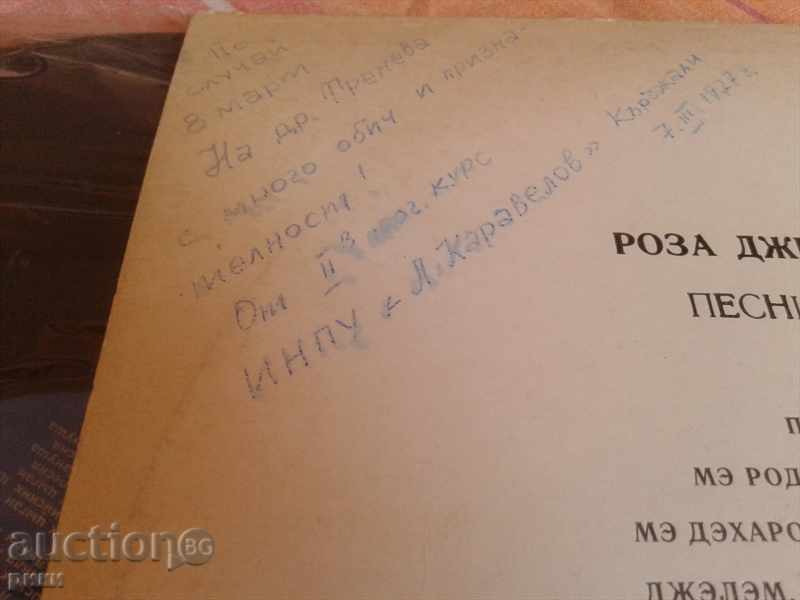 По
случай
8 март
На др. Тренева
с много обич и призна-
телност!
От II в пог. курс
ИНПУ "Л. Каравелов" Кърджали
7. III. 1977 г.
РОЗА ДЖ
ПЕСНИ
П
МЭ РОД
МЭ ДЭХАРО
ДЖЭЛЭМ,
auctionBG